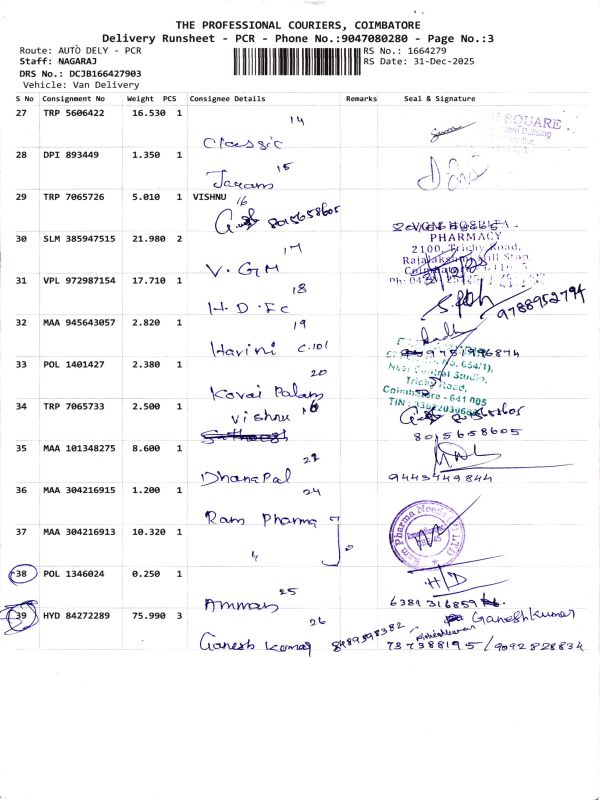 THE PROFESSIONAL COURIERS, COIMBATORE
Delivery Runsheet - PCR - Phone No.:9047080280 - Page No.:3
Route: AUTO DELY - PCR RS No.: 1664279
Staff: NAGARAJ RS Date: 31-Dec-2025
DRS No.: DCJB166427903
Vehicle: Van Delivery
S No Consignment No Weight PCS Consignee Details Remarks Seal & Signature
27 TRP 5606422 16.530 1
14
Classic
SQUARE
28 DPI 893449 1.350 1
15
29 TRP 7065726 5.010 1 VISHNU
16
8015658605
30 SLM 385947515 21.980 2
17
V.GM
V.G.M HOSPITAL
PHARMACY
2100, Trichy Road,
Rajalakshmi Mill Stop,
31 VPL 972987154 17.710 1
18
H.D.Fc
9788952794
32 MAA 945643057 2.820 1
19
Harini C.101
33 POL 1401427 2.380 1
20
Kovai Palam
Trichy Road,
Coimbatore - 641 005
34 TRP 7065733 2.500 1
Vishnu
8015658605
35 MAA 101348275 8.600 1
22
Dhanapal
9443749844
36 MAA 304216915 1.200 1
24
Ram Pharma
Ram Pharma Needs (P) LTD
37 MAA 304216913 10.320 1
"
38 POL 1346024 0.250 1
25
Amman
H/D
6381316859
39 HYD 84272289 75.990 3
26
Ganesh Kumar 8489598382
GaneshKumar
737388195 / 9092828834